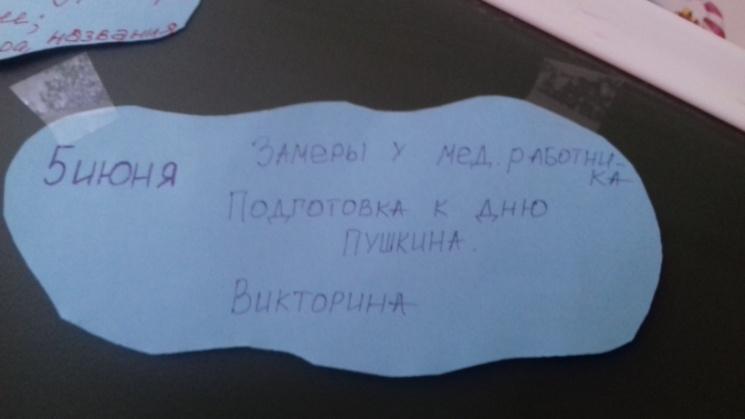 ра названия
5 июня
Замеры у мед. работни-
ка
Подготовка к дню
Пушкина.
Викторина